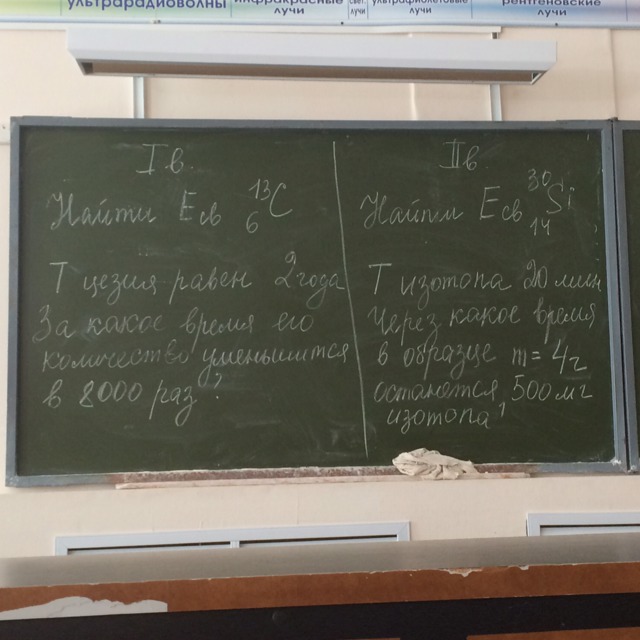 ультрарадиоволны
инфракрасные
лучи
свет.
лучи
ультрафиолетовые
лучи
рентгеновские
лучи
I в.
Найти Eсв ¹³₆C
T цезия равен 2 года
За какое время его
количество уменьшится
в 8000 раз?
II в
Найти Eсв ³⁰₁₄Si
T изотопа 20 мин
Через какое время
в образце m = 4г
останется 500 мг
изотопа?